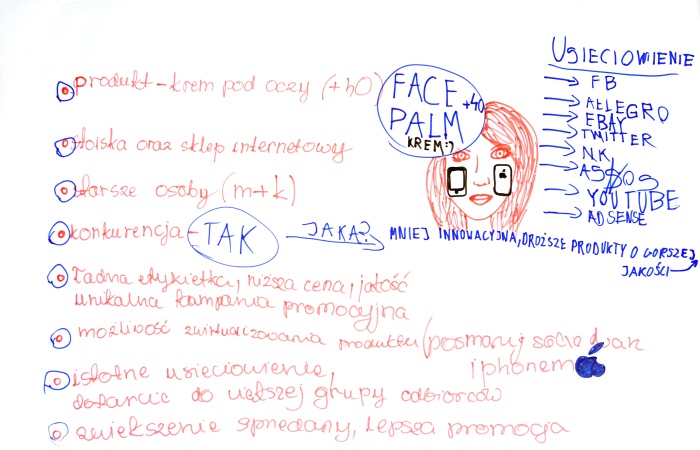 produkt - krem pod oczy (+40)
stoiska oraz sklep internetowy
starsze osoby (m+k)
konkurencja - TAK
JAKA?
MNIEJ INNOWACYJNA, DROŻSZE PRODUKTY O GORSZEJ
JAKOŚCI
ładna etykietka, niższa cena, jakość
unikalna kampania promocyjna
możliwość zwirtualizowania produktu (posmaruj sobie twarz
iphonem
istotne usieciowienie,
dotarcie do większej grupy odbiorców
zwiększenie sprzedaży, lepsza promocja
FACE
+40
PALM
KREM :)
USIECIOWIENIE
FB
ALLEGRO
EBAY
TWITTER
N.K.
YOUTUBE
ADSENSE